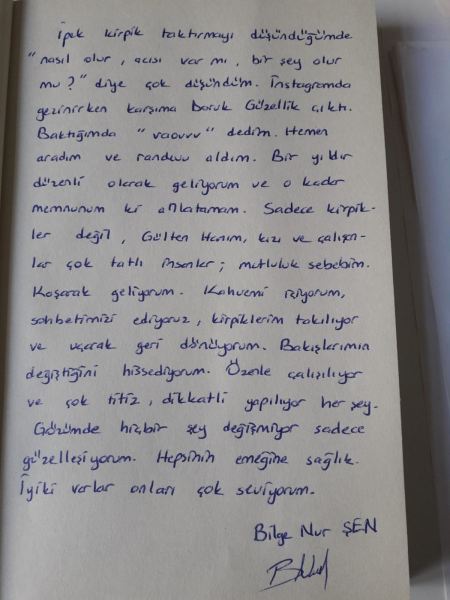 İpek kirpik taktırmayı düşündüğümde
"nasıl olur, acısı var mı, bir şey olur
mu?" diye çok düşündüm. İnstagramda
gezinirken karşıma Doruk Güzellik çıktı.
Baktığımda "vaouvv" dedim. Hemen
aradım ve randevu aldım. Bir yıldır
düzenli olarak geliyorum ve o kadar
memnunum ki anlatamam. Sadece kirpik-
ler değil, Gülten Hanım, kızı ve çalışan-
lar çok tatlı insanlar; mutluluk sebebim.
Koşarak geliyorum. Kahvemi içiyorum,
sohbetimizi ediyoruz, kirpiklerim takılıyor
ve uçarak geri dönüyorum. Bakışlarımın
değiştiğini hissediyorum. Özenle çalışılıyor
ve çok titiz, dikkatli yapılıyor her şey.
Gözümde hiçbir şey değişmiyor sadece
güzelleşiyorum. Hepsinin emeğine sağlık.
İyiki varlar onları çok seviyorum.
Bilge Nur ŞEN